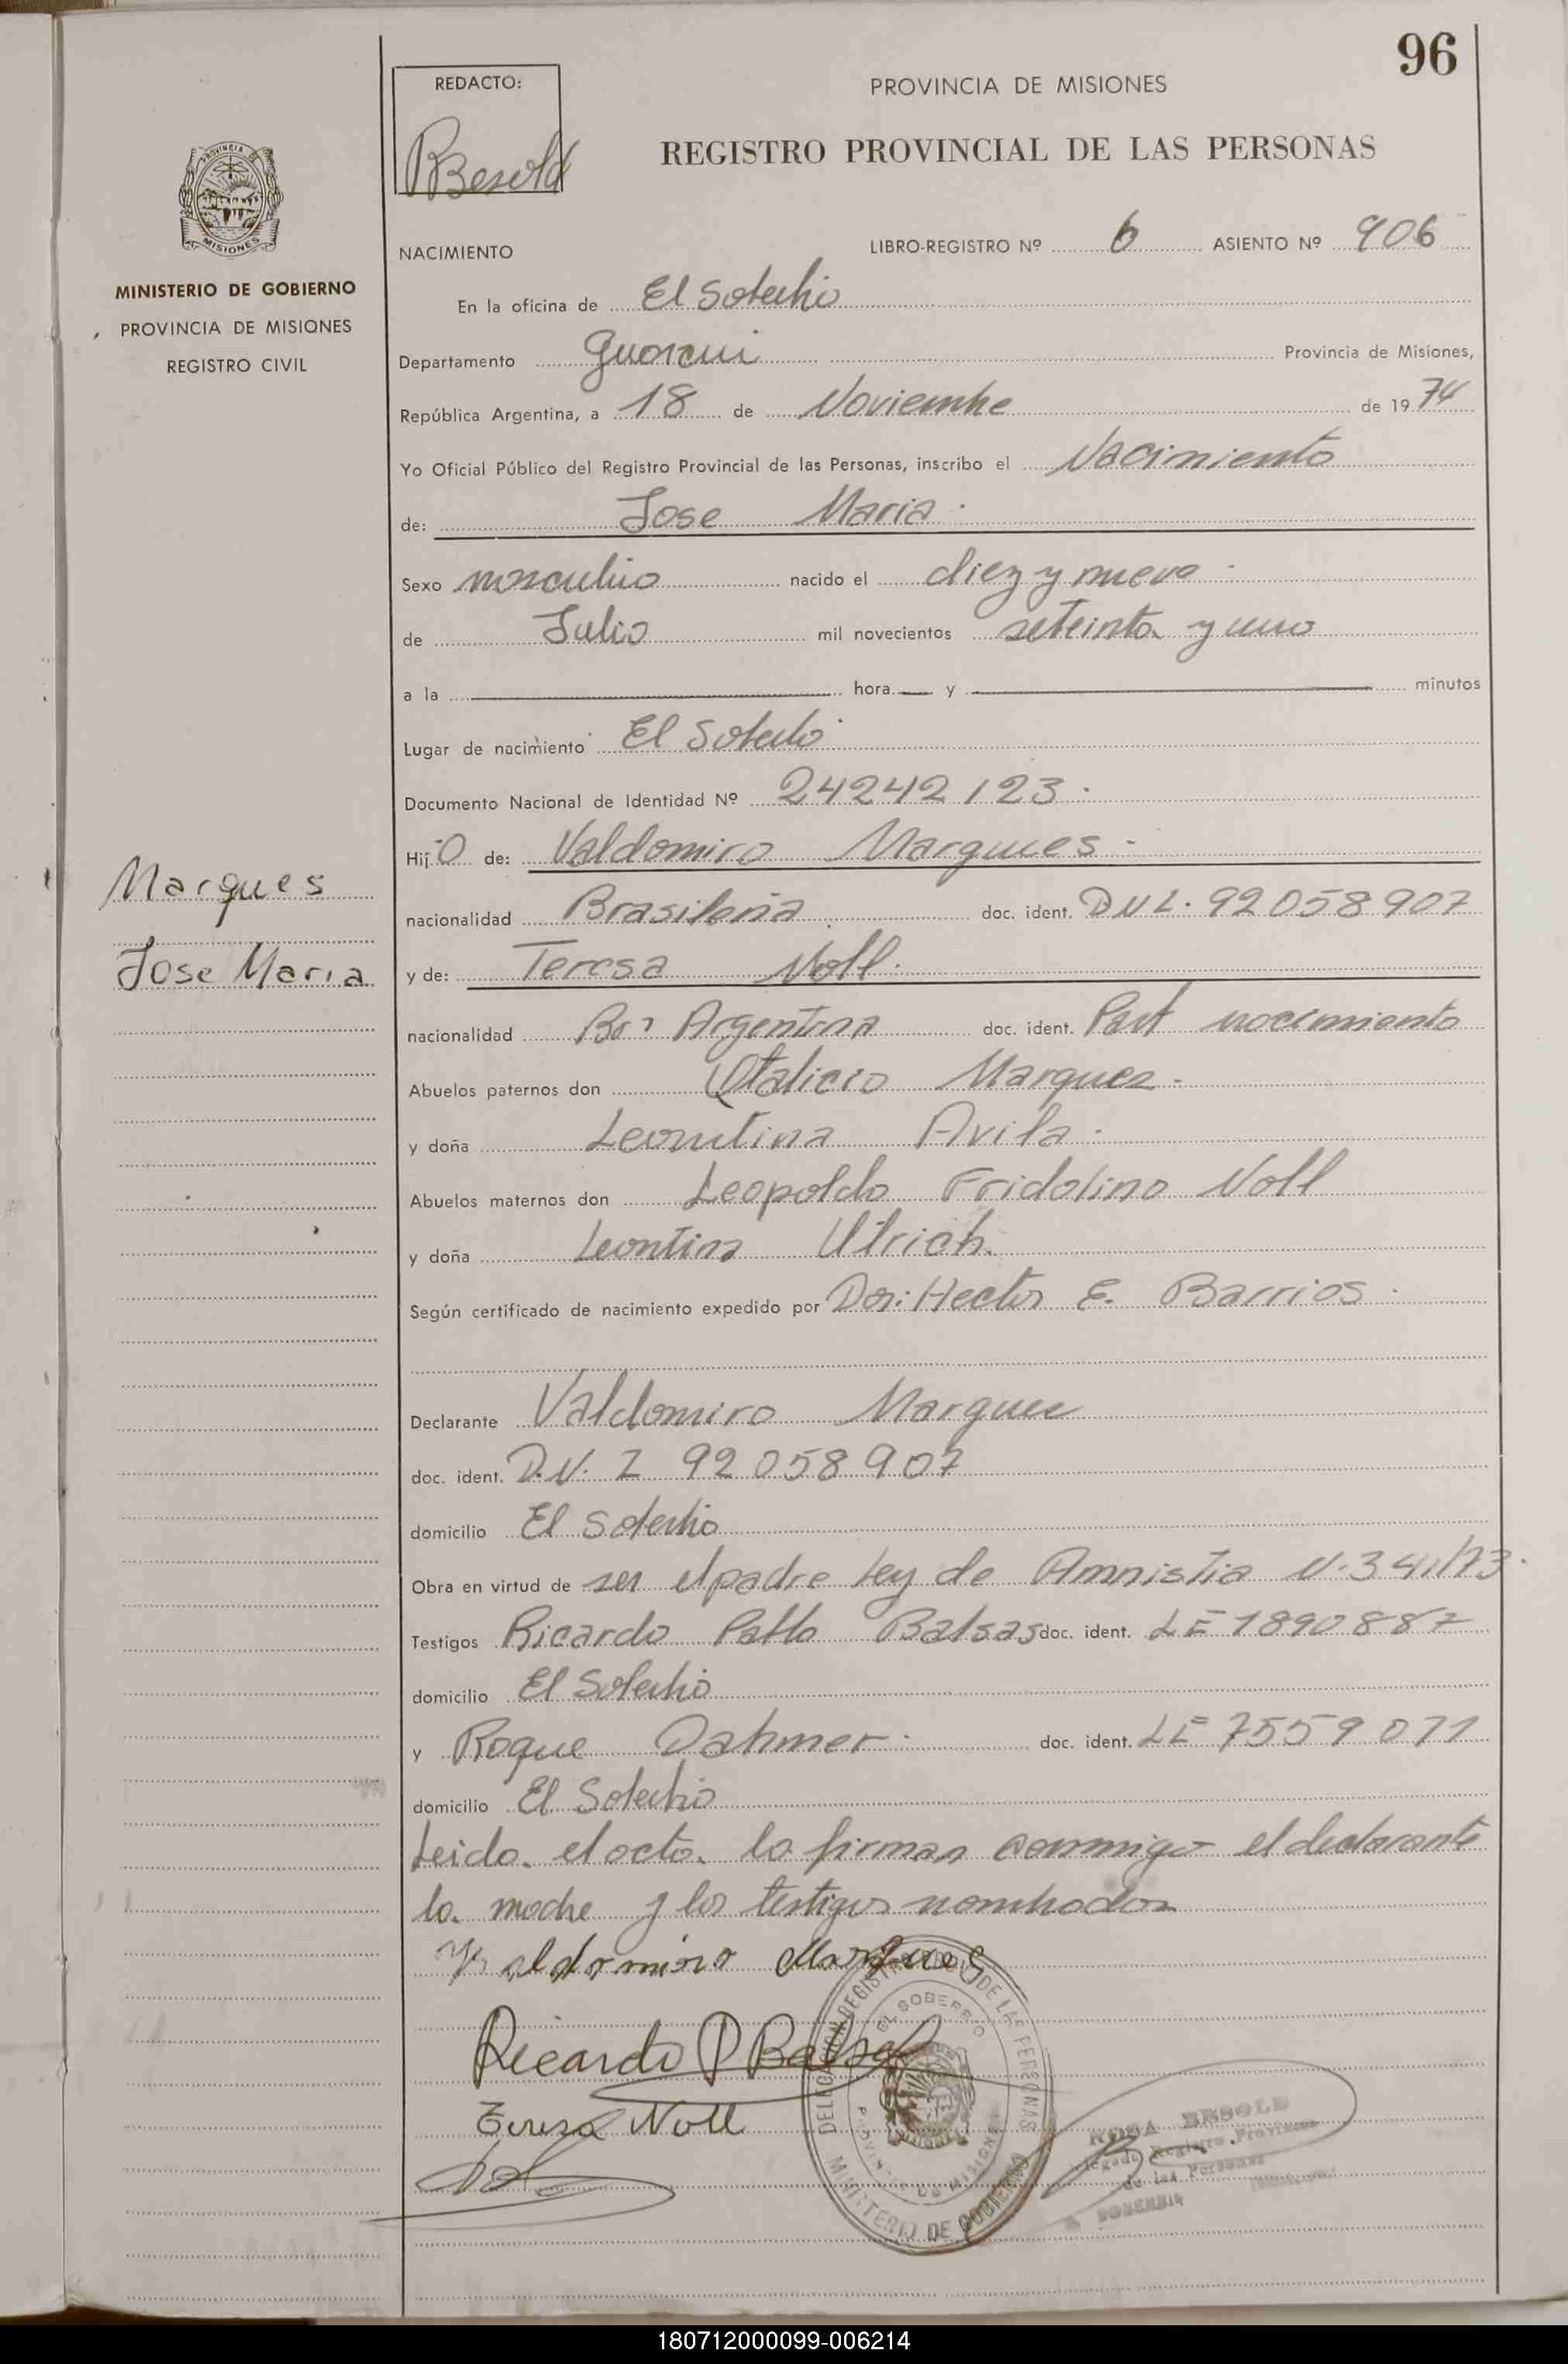 96
REDACTO:
PROVINCIA DE MISIONES
RBesold
REGISTRO PROVINCIAL DE LAS PERSONAS
PROVINCIA
MISIONES
NACIMIENTO LIBRO-REGISTRO Nº 6 ASIENTO Nº 906
MINISTERIO DE GOBIERNO
PROVINCIA DE MISIONES
REGISTRO CIVIL
En la oficina de El Soberbio
Departamento Guarani Provincia de Misiones,
República Argentina, a 18 de Noviembre de 1974
Yo Oficial Público del Registro Provincial de las Personas, inscribo el Nacimiento
de: Jose Maria
Sexo masculino nacido el diez y nueve
de Julio mil novecientos seteinta y uno
a la hora y minutos
Lugar de nacimiento El Soberbio
Documento Nacional de Identidad Nº 24242123
Hijo de: Valdomiro Marques
Marques
nacionalidad Brasileña doc. ident. DNI. 92058907
Jose Maria
y de: Teresa Noll
nacionalidad Argentina doc. ident. Part nacimiento
Abuelos paternos don Otalicio Marquez
y doña Leontina Avila
Abuelos maternos don Leopoldo Fridolino Noll
y doña Leontina Ulrich.
Según certificado de nacimiento expedido por Dor: Hector E. Barrios
Declarante Valdomiro Marques
doc. ident. D.N.I 92058907
domicilio El Soberbio
Obra en virtud de ser el padre Ley de Amnistia N.341/73
Testigos Ricardo Pablo Balsas doc. ident. LE 1890887
domicilio El Soberbio
y Roque Dahmer doc. ident. LE 7559071
domicilio El Soberbio
Leida el acta la firman conmigo el declarante
la madre y los testigos nombrados
Valdormiro Marques
Ricardo P Balsas
Teresa Noll
DELEGACION REGISTRO PROV. DE LAS PERSONAS
EL SOBERBIO
PROVINCIA DE MISIONES
MINISTERIO DE GOBIERNO
ROSA BESOLD
Delegado Registro Provincial
de las Personas
SOBERBIO
180712000099-006214